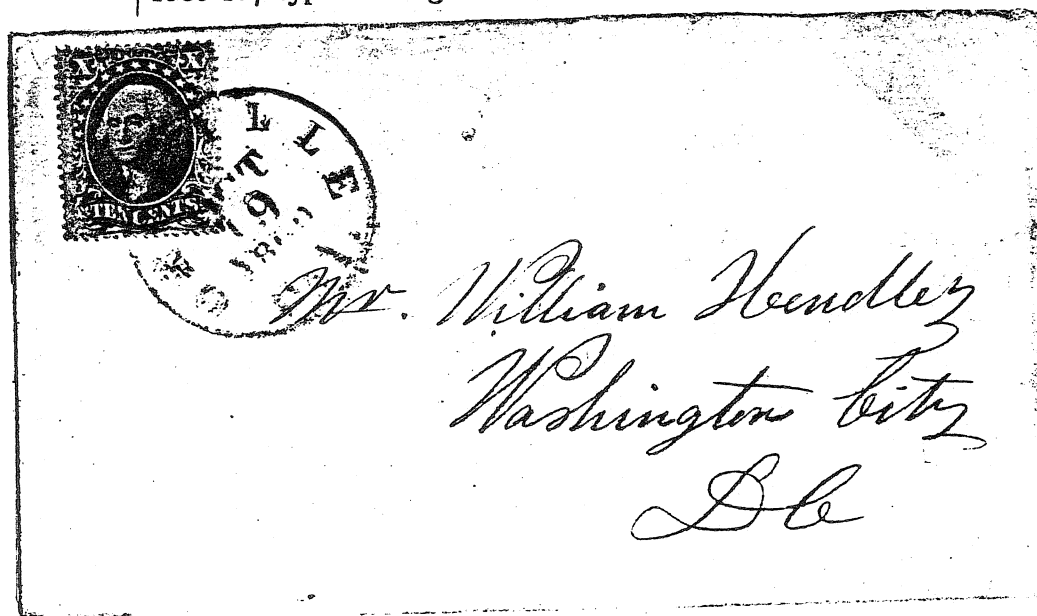 X X
TEN CENTS
ILLE
19
Mr. William Hendley
Washington City
D C